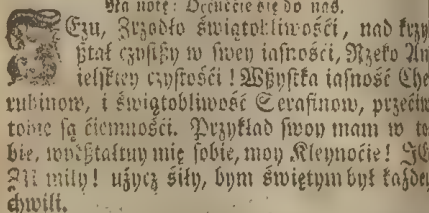 Na notę: Ocućcie się do nas.
JEzu, Zrzodło świątobliwośći, nad krzy
ształ czystszy w swey iasnośći, Rzeko An
ielskiey czystośći! Wszystka iasność Che
rubinow, i świątobliwość Serafinow, przećiw
tobie są ćiemnośći. Przykład swoy mam w to
bie, wykształtuy mię sobie, moy Kleynoćie! JE
ZU miły! użycz śiły, bym świętym był każdey
chwili.